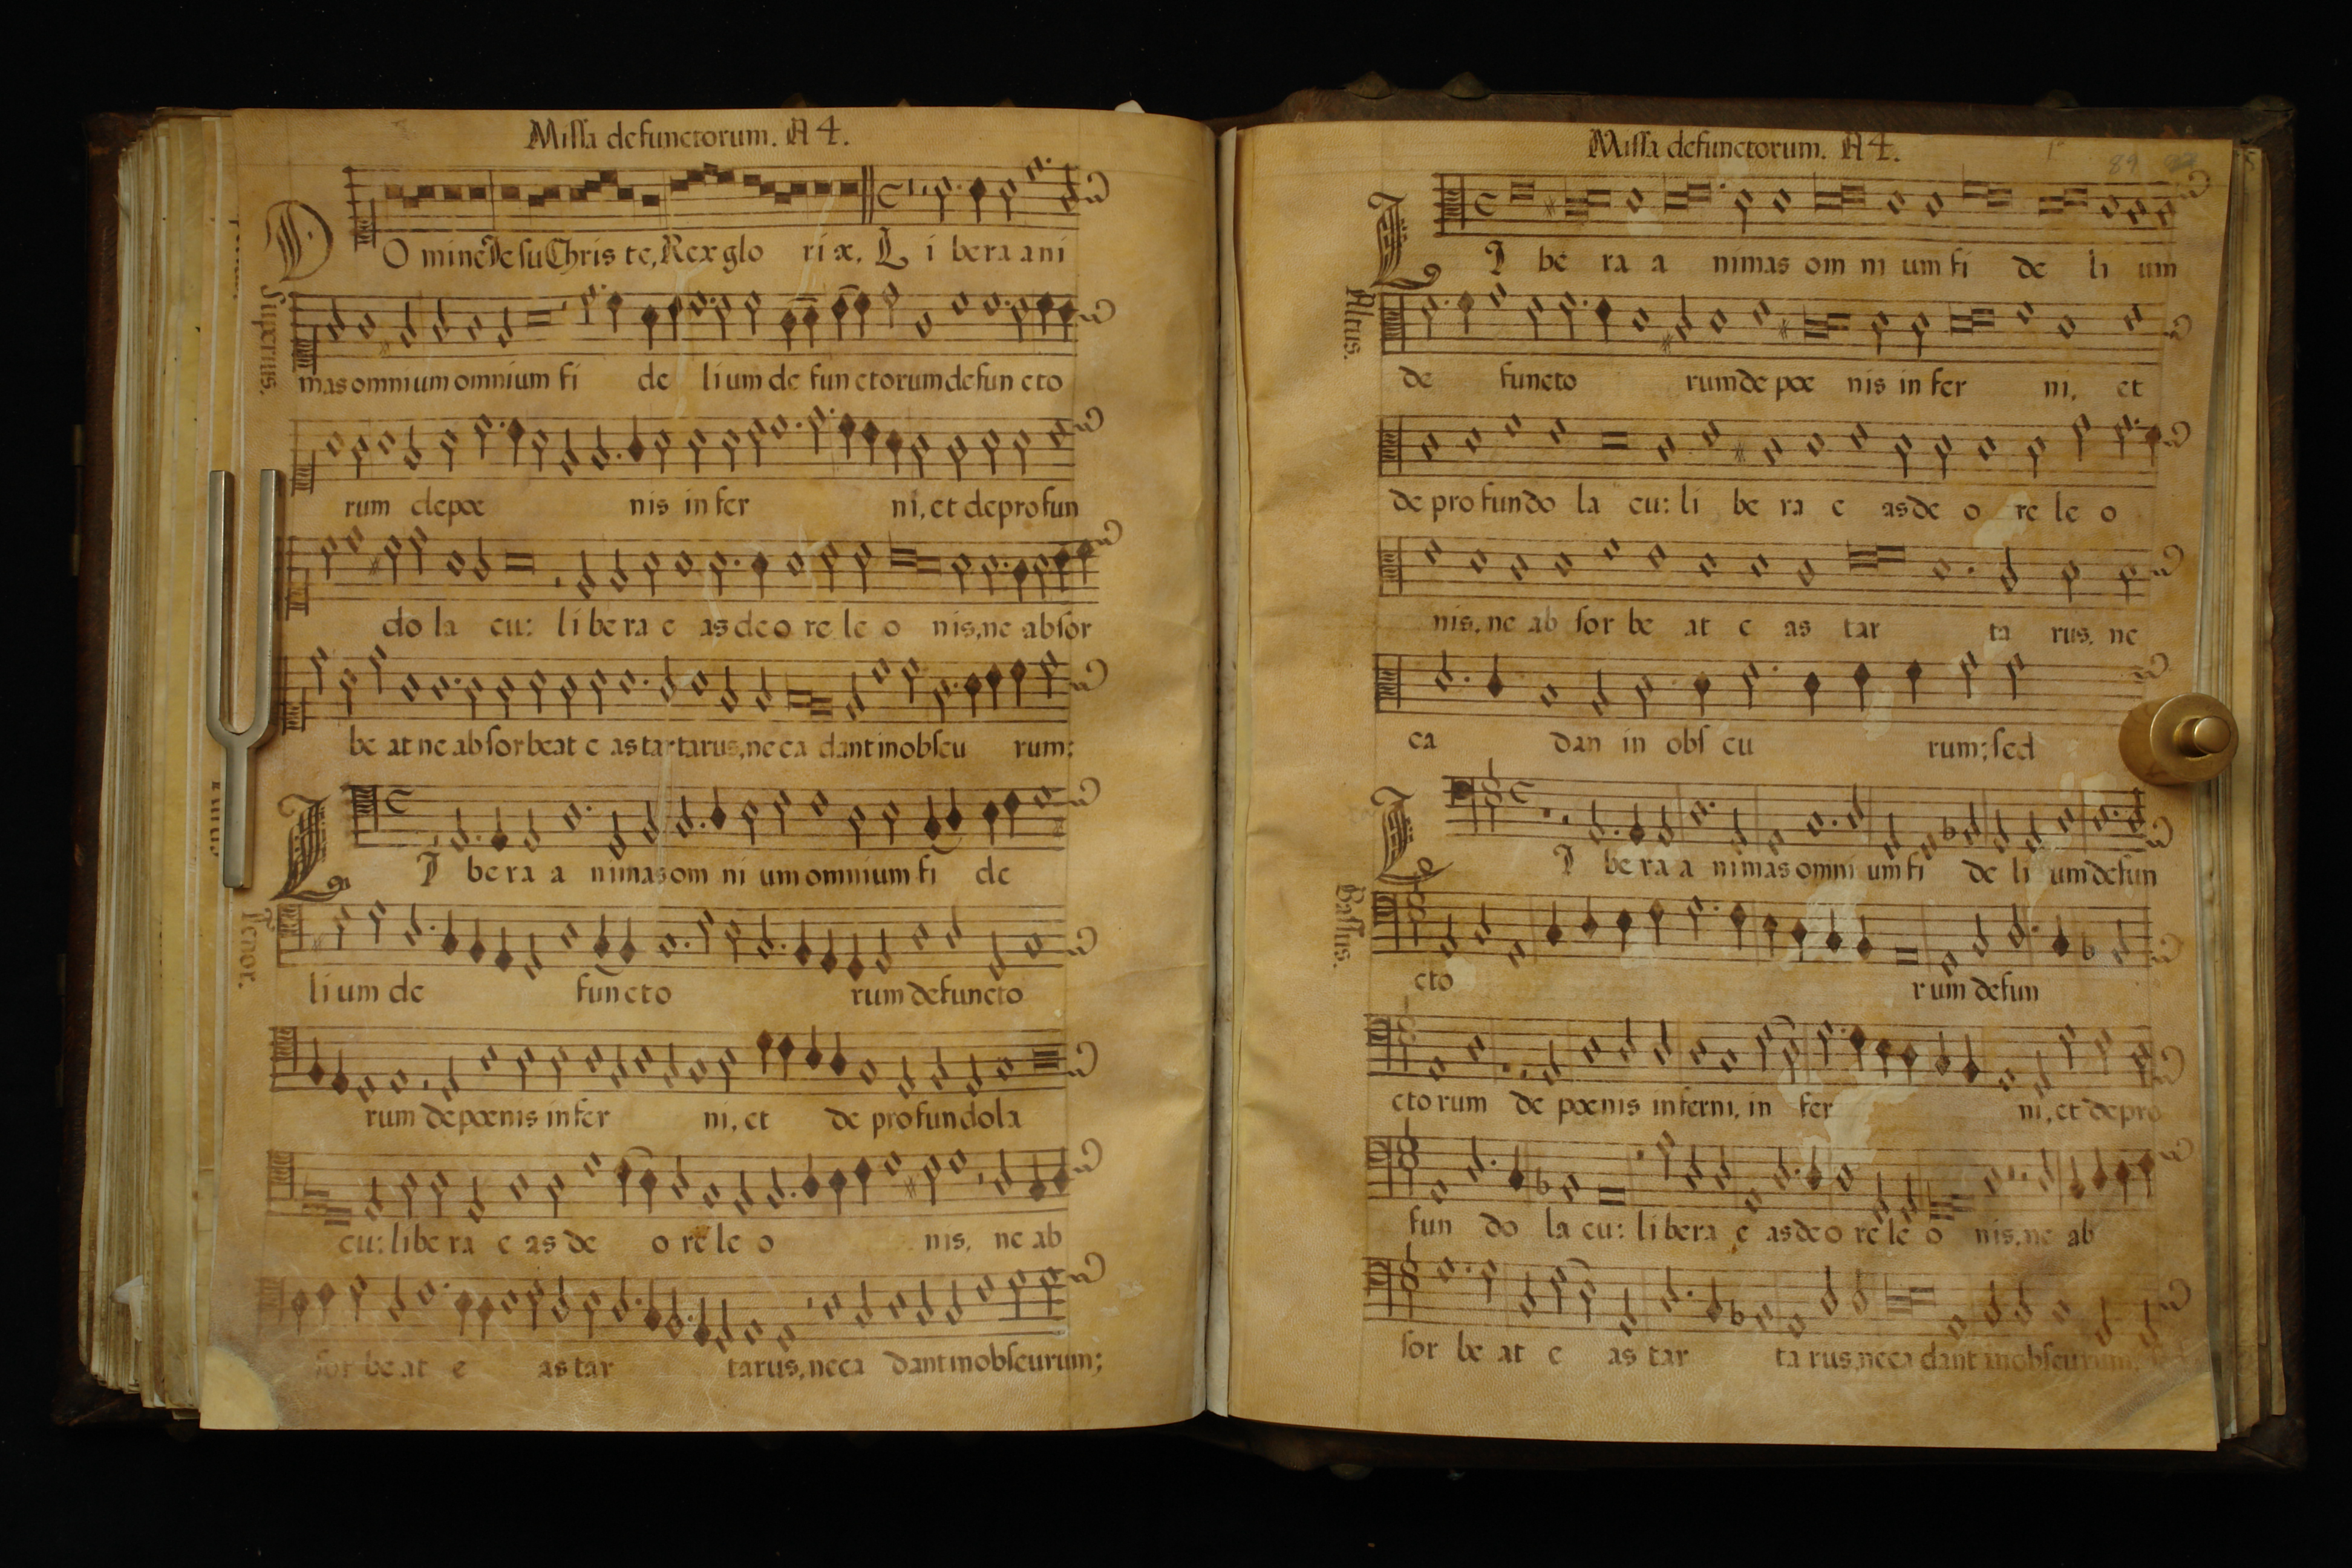 Missa defunctorum. A 4.
DO mine Jesu Chris te, Rex glo ri æ. L i bera ani
Superius.
mas omnium omnium fi de lium de functorum defuncto
rum de pœ nis in fer ni, et de profun
do la cu: libera e as de o re le o nis, ne absor
be at ne absorbeat e as tartarus, ne ca dant in obscu rum:
LI bera a nimas om ni um omnium fi de
Tenor.
lium de functo rum defuncto
rum de pœnis in fer ni, et de profundo la
cu: libe ra e as de o re le o nis, ne ab
sor be at e as tar tarus, ne ca dant in obscurum;
Missa defunctorum. A 4.
89
LI be ra a nimas om ni um fi de li um
Altus.
de functo rum de pœ nis in fer ni, et
de profundo la cu: li be ra e as de o re le o
nis, ne ab sor be at e as tar ta rus, ne
ca dan in obs cu rum; sed
LI bera a nimas omni um fi de li um defun
Bassus.
cto rum defun
ctorum de pœnis inferni, in fer ni, et de pro
fun do la cu: libera e as de o re le o nis, ne ab
sor be at e as tar ta rus, ne ca dant in obscurum,